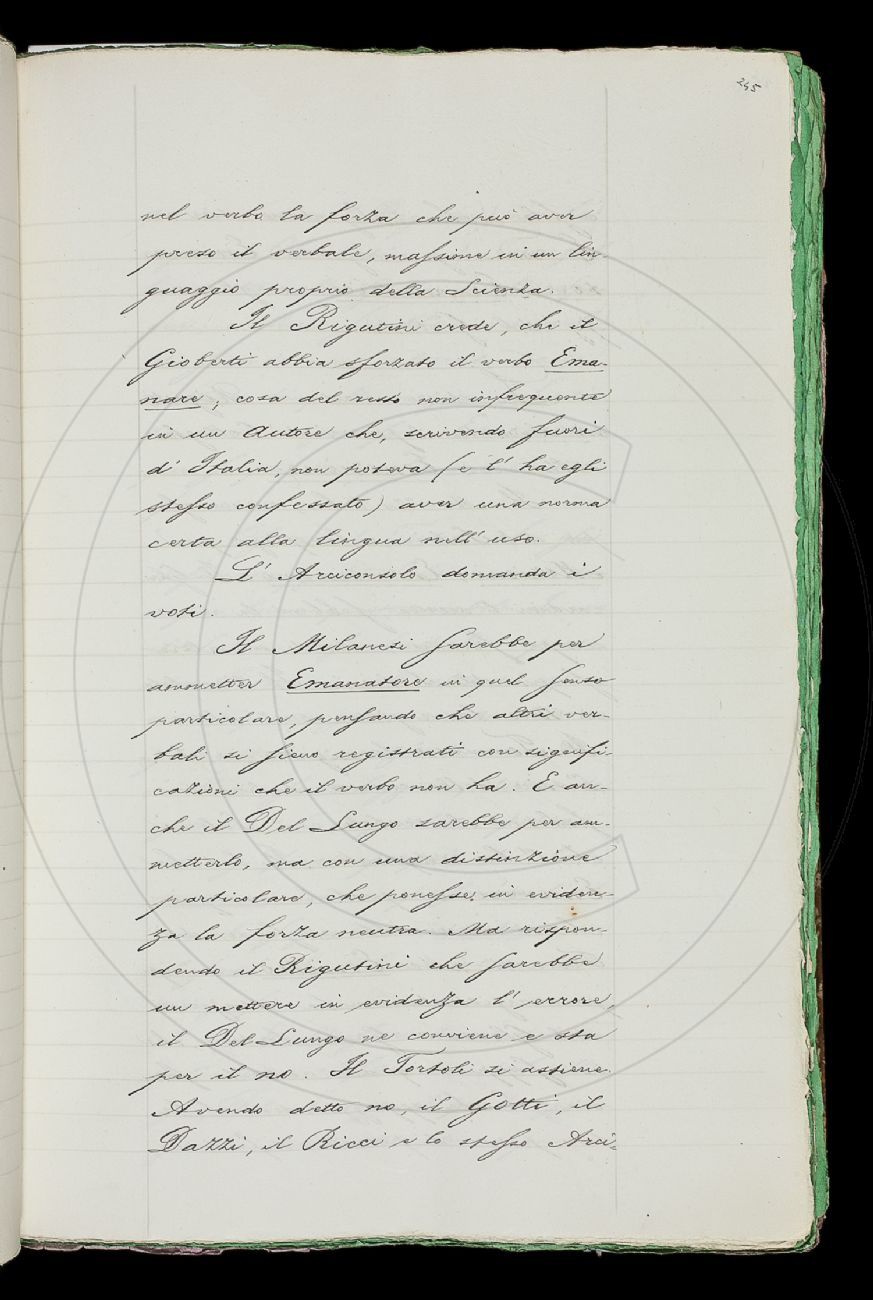 245
nel verbo la forza che può aver
preso il verbale, massime in un lin-
guaggio proprio della Scienza.
Il Rigutini crede, che il
Gioberti abbia sforzato il verbo Ema-
nare; cosa del resto non infrequente
in un Autore che, scrivendo fuori
d' Italia, non poteva (e l' ha egli
stesso confessato) aver una norma
certa alla lingua nell' uso.
L' Arciconsolo domanda i
voti.
Il Milanesi sarebbe per
ammetter Emanatore in quel senso
particolare, pensando che altri ver-
bali si sieno registrati con signifi-
cazioni che il verbo non ha. E an-
che il Del Lungo sarebbe per am-
metterlo, ma con una distinzione
particolare, che ponesse in eviden-
za la forza neutra. Ma rispon-
dendo il Rigutini che sarebbe
un mettere in evidenza l' errore,
il Del Lungo ne conviene e sta
per il no. Il Tortoli si astiene.
Avendo detto no, il Gotti, il
Dazzi, il Ricci e lo stesso Arci-